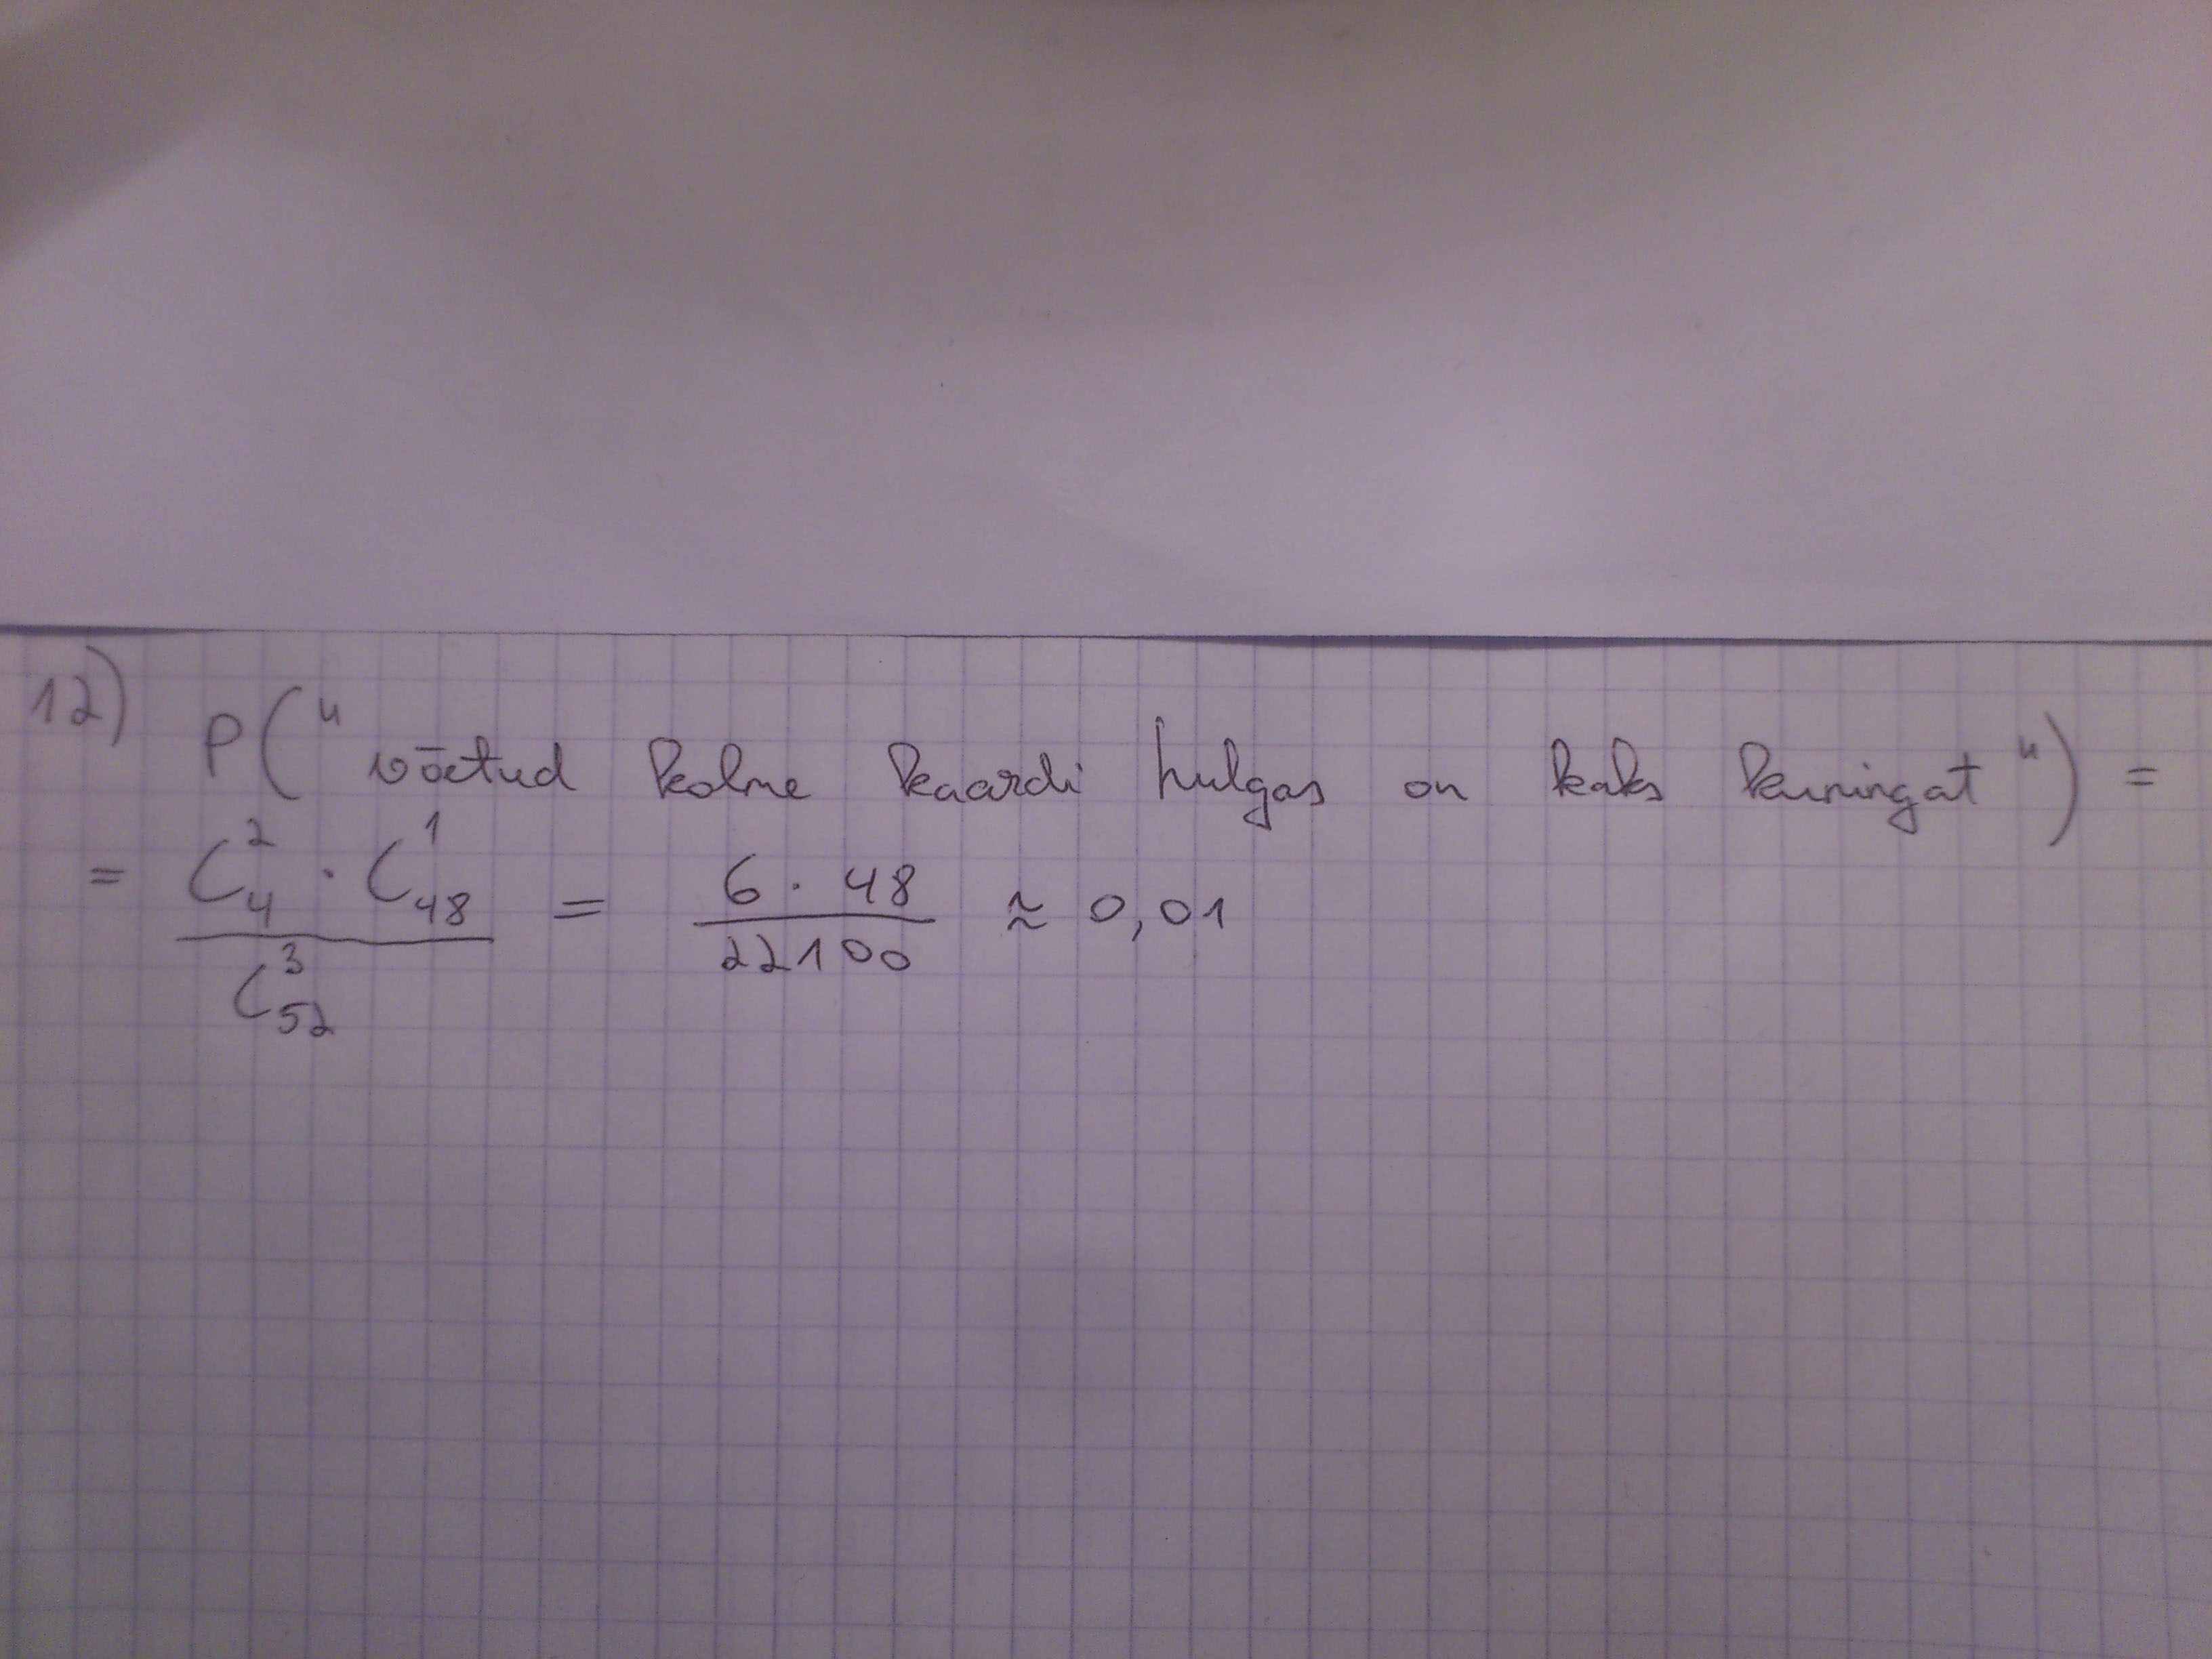 12) P("võetud kolme kaardi hulgas on kaks kuningat") =
= \frac{C_4^2 · C_{48}^1}{C_{52}^3} = \frac{6 · 48}{22100} ≈ 0,01